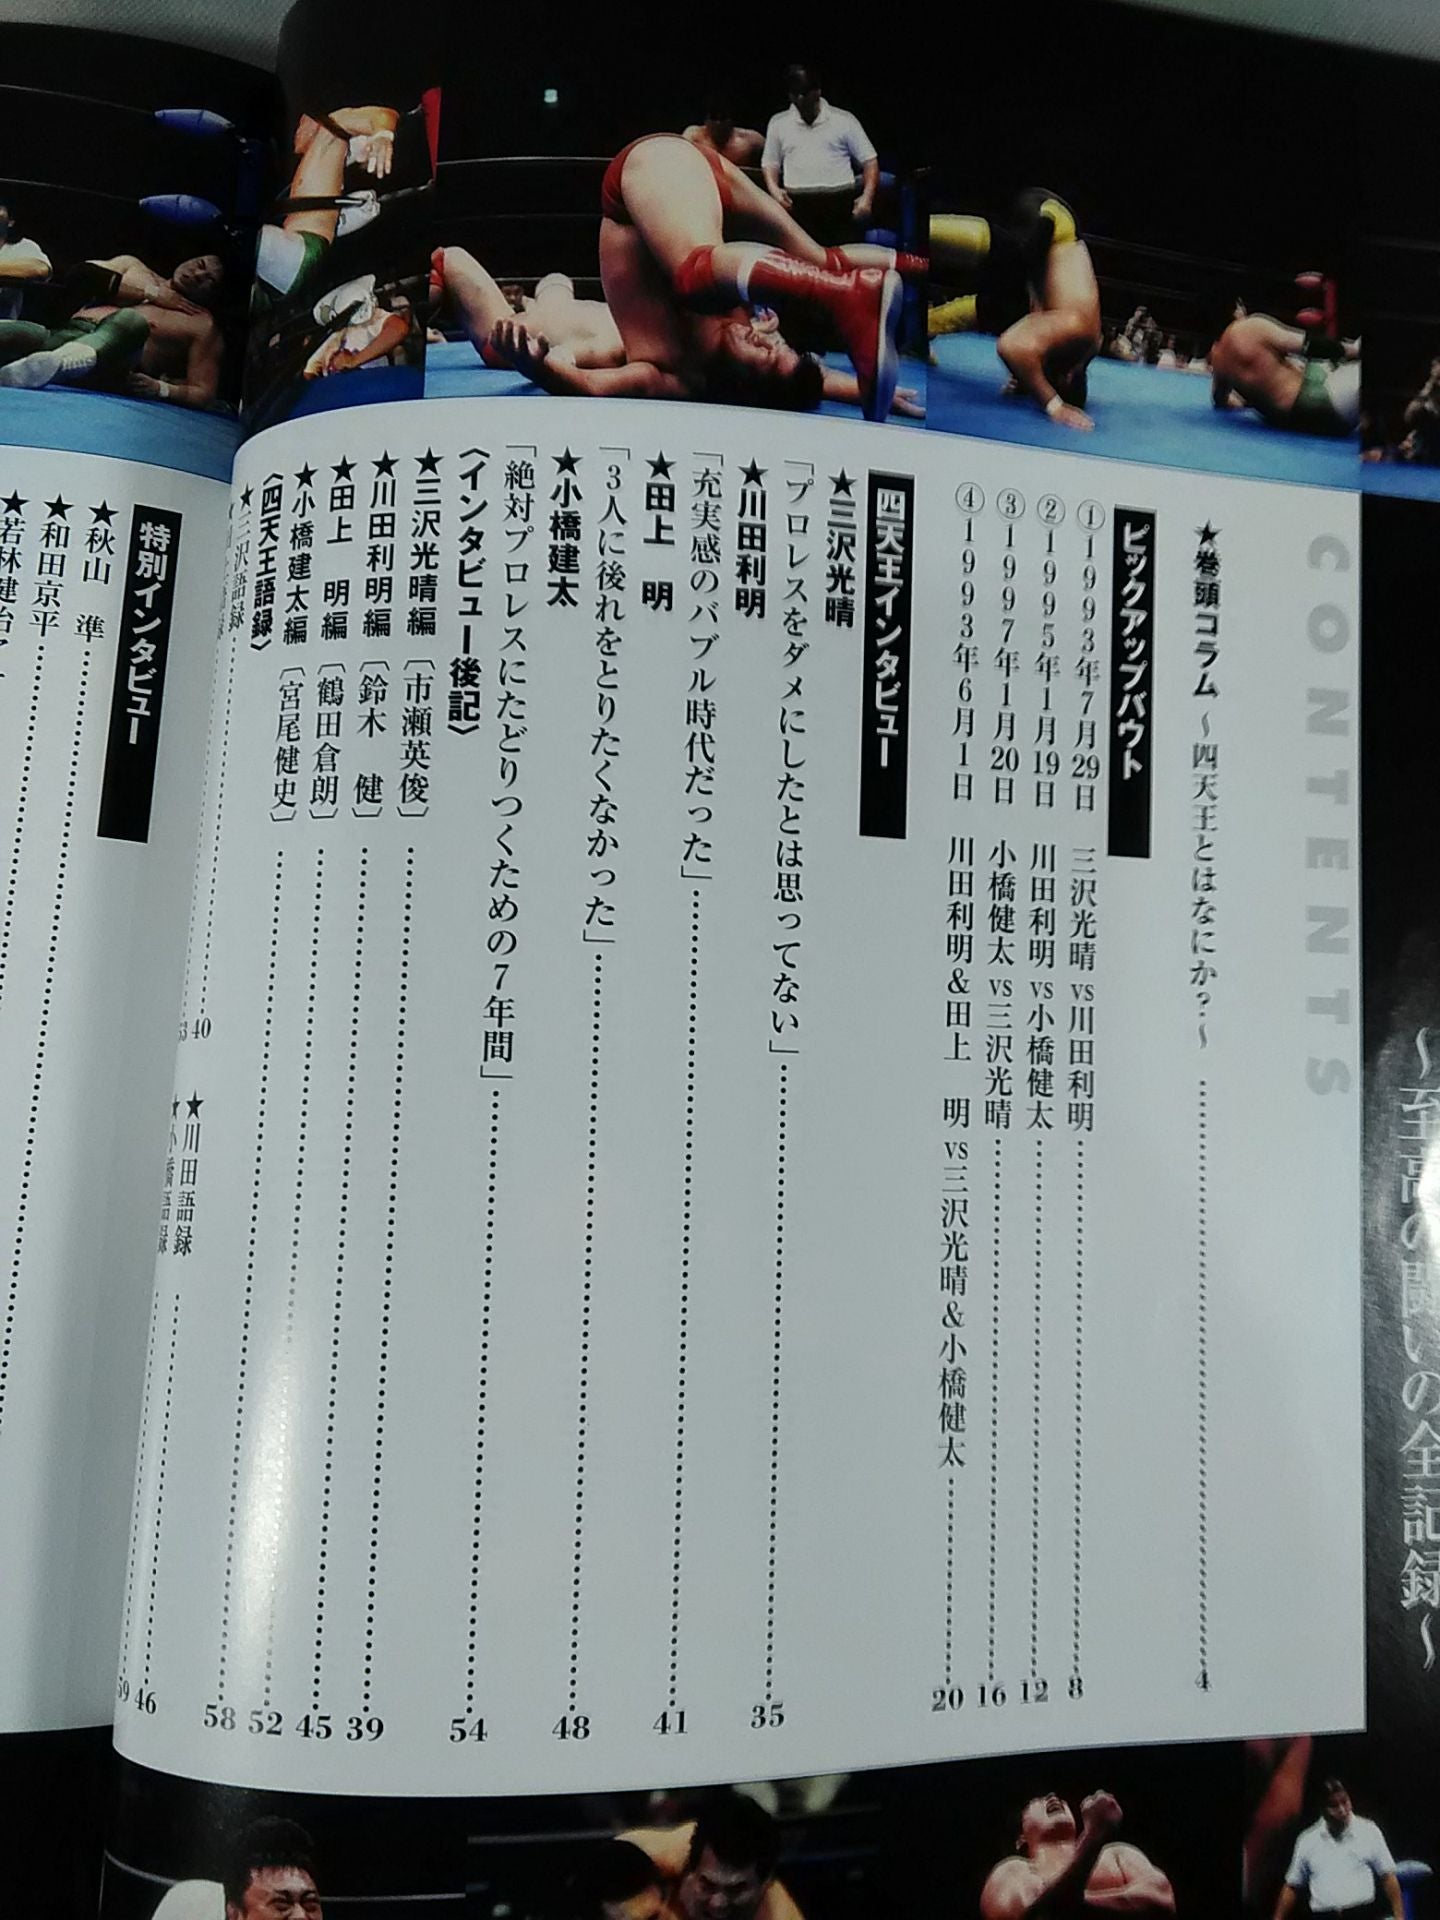 ～至高の闘いの全記録～
CONTENTS
★巻頭コラム ～四天王とはなにか？～ 4
ピックアップバウト
①1993年7月29日 三沢光晴vs川田利明 8
②1995年1月19日 川田利明vs小橋健太 12
③1997年1月20日 小橋健太vs三沢光晴 16
④1993年6月1日 川田利明＆田上 明vs三沢光晴＆小橋健太 20
四天王インタビュー
★三沢光晴
「プロレスをダメにしたとは思ってない」 35
★川田利明
「充実感のバブル時代だった」 41
★田上 明
「3人に後れをとりたくなかった」 48
★小橋建太
「絶対プロレスにたどりつくための7年間」 54
〈インタビュー後記〉
★三沢光晴編〔市瀬英俊〕 39
★川田利明編〔鈴木 健〕 45
★田上 明編〔鶴田倉朗〕 52
★小橋建太編〔宮尾健史〕 58
〈四天王語録〉
★三沢語録 40
★川田語録 46
★小橋語録 59
特別インタビュー
★秋山 準
★和田京平
★若林健治